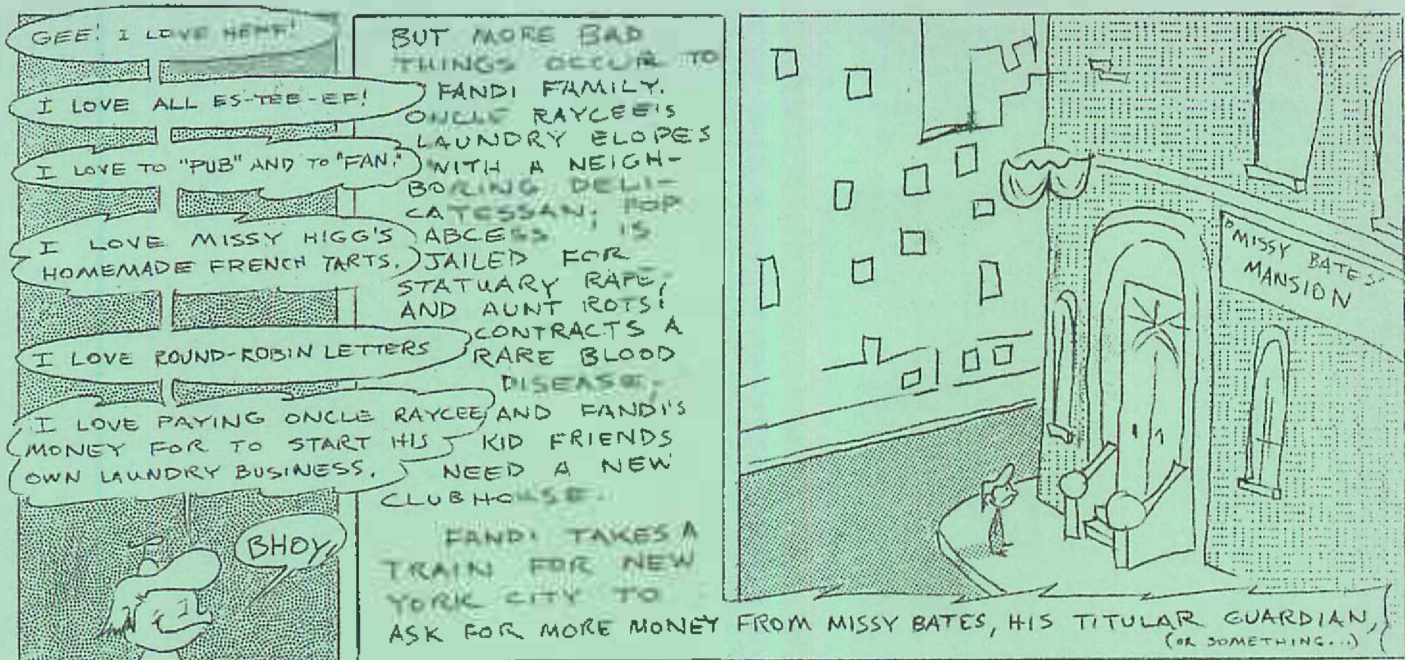 GEE! I LOVE HEMF!
I LOVE ALL ES-TEE-EF!
I LOVE TO "PUB" AND TO "FAN."
I LOVE MISSY HIGG'S
HOMEMADE FRENCH TARTS.
I LOVE ROUND-ROBIN LETTERS
I LOVE PAYING ONCLE RAYCEE
MONEY FOR TO START HIS
OWN LAUNDRY BUSINESS.
BHOY,
BUT MORE BAD
THINGS OCCUR TO
FANDI FAMILY.
ONCLE RAYCEE'S
LAUNDRY ELOPES
WITH A NEIGH-
BORING DELI-
CATESSAN; POP
ABCESS IS
JAILED FOR
STATUARY RAPE,
AND AUNT ROTSI
CONTRACTS A
RARE BLOOD
DISEASE,
AND FANDI'S
KID FRIENDS
NEED A NEW
CLUBHOUSE.
FANDI TAKES A
TRAIN FOR NEW
YORK CITY TO
ASK FOR MORE MONEY FROM MISSY BATES, HIS TITULAR GUARDIAN,
(OR SOMETHING...)
MISSY BATES'
MANSION